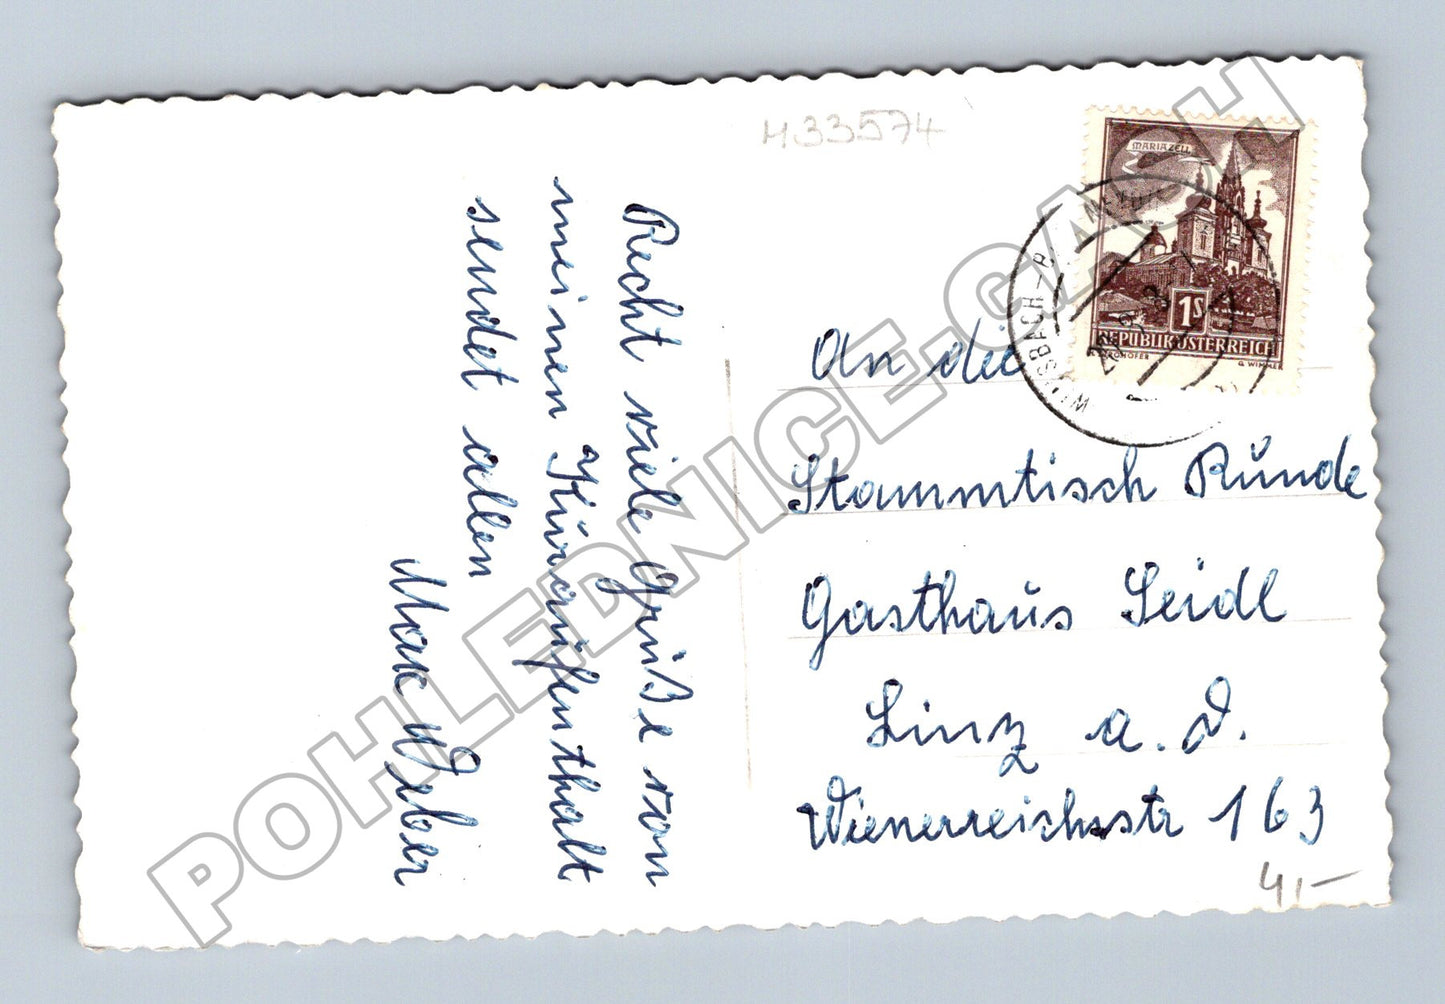 H33574
Recht viele Grüße von
meinen Kúraúfenthalt
sendet allen
Max Weber
An die
Stammtisch Rúnde
Gasthaús Seidl
Linz a. D.
Wienerreichsstr 163
41,-
MARIAZELL
1S
REPUBLIK ÖSTERREICH
G. WIMMER
POHLEDNICE-CASH